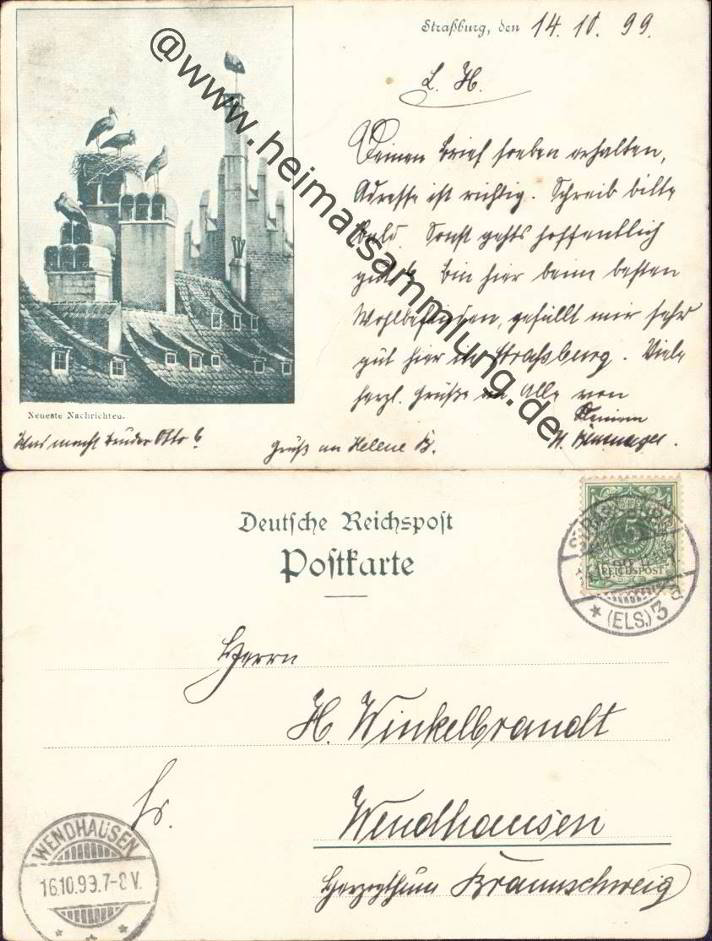 Straßburg, den 14. 10. 99.
L. H.
Deinen Brief soeben erhalten,
Adresse ist richtig. Schreib bitte
bald. Sonst gehts hoffentlich
gut. bin hier beim besten
Wohlbefinden, gefällt mir sehr
gut hier in Straßburg. Viele
herzl. Grüße an Alle von
Deinem
H.
Neueste Nachrichten.
Was macht Bruder Otto?
Gruß an Helene B.
@www.heimatsammlung.de
Deutsche Reichspost
Postkarte
5
REICHSPOST
STRASSBURG
(ELS.) 3 a
Herrn
H. Winkelbrandt
Wendhausen
Herzogthum Braunschweig
WENDHAUSEN
16.10.99.7-8V.